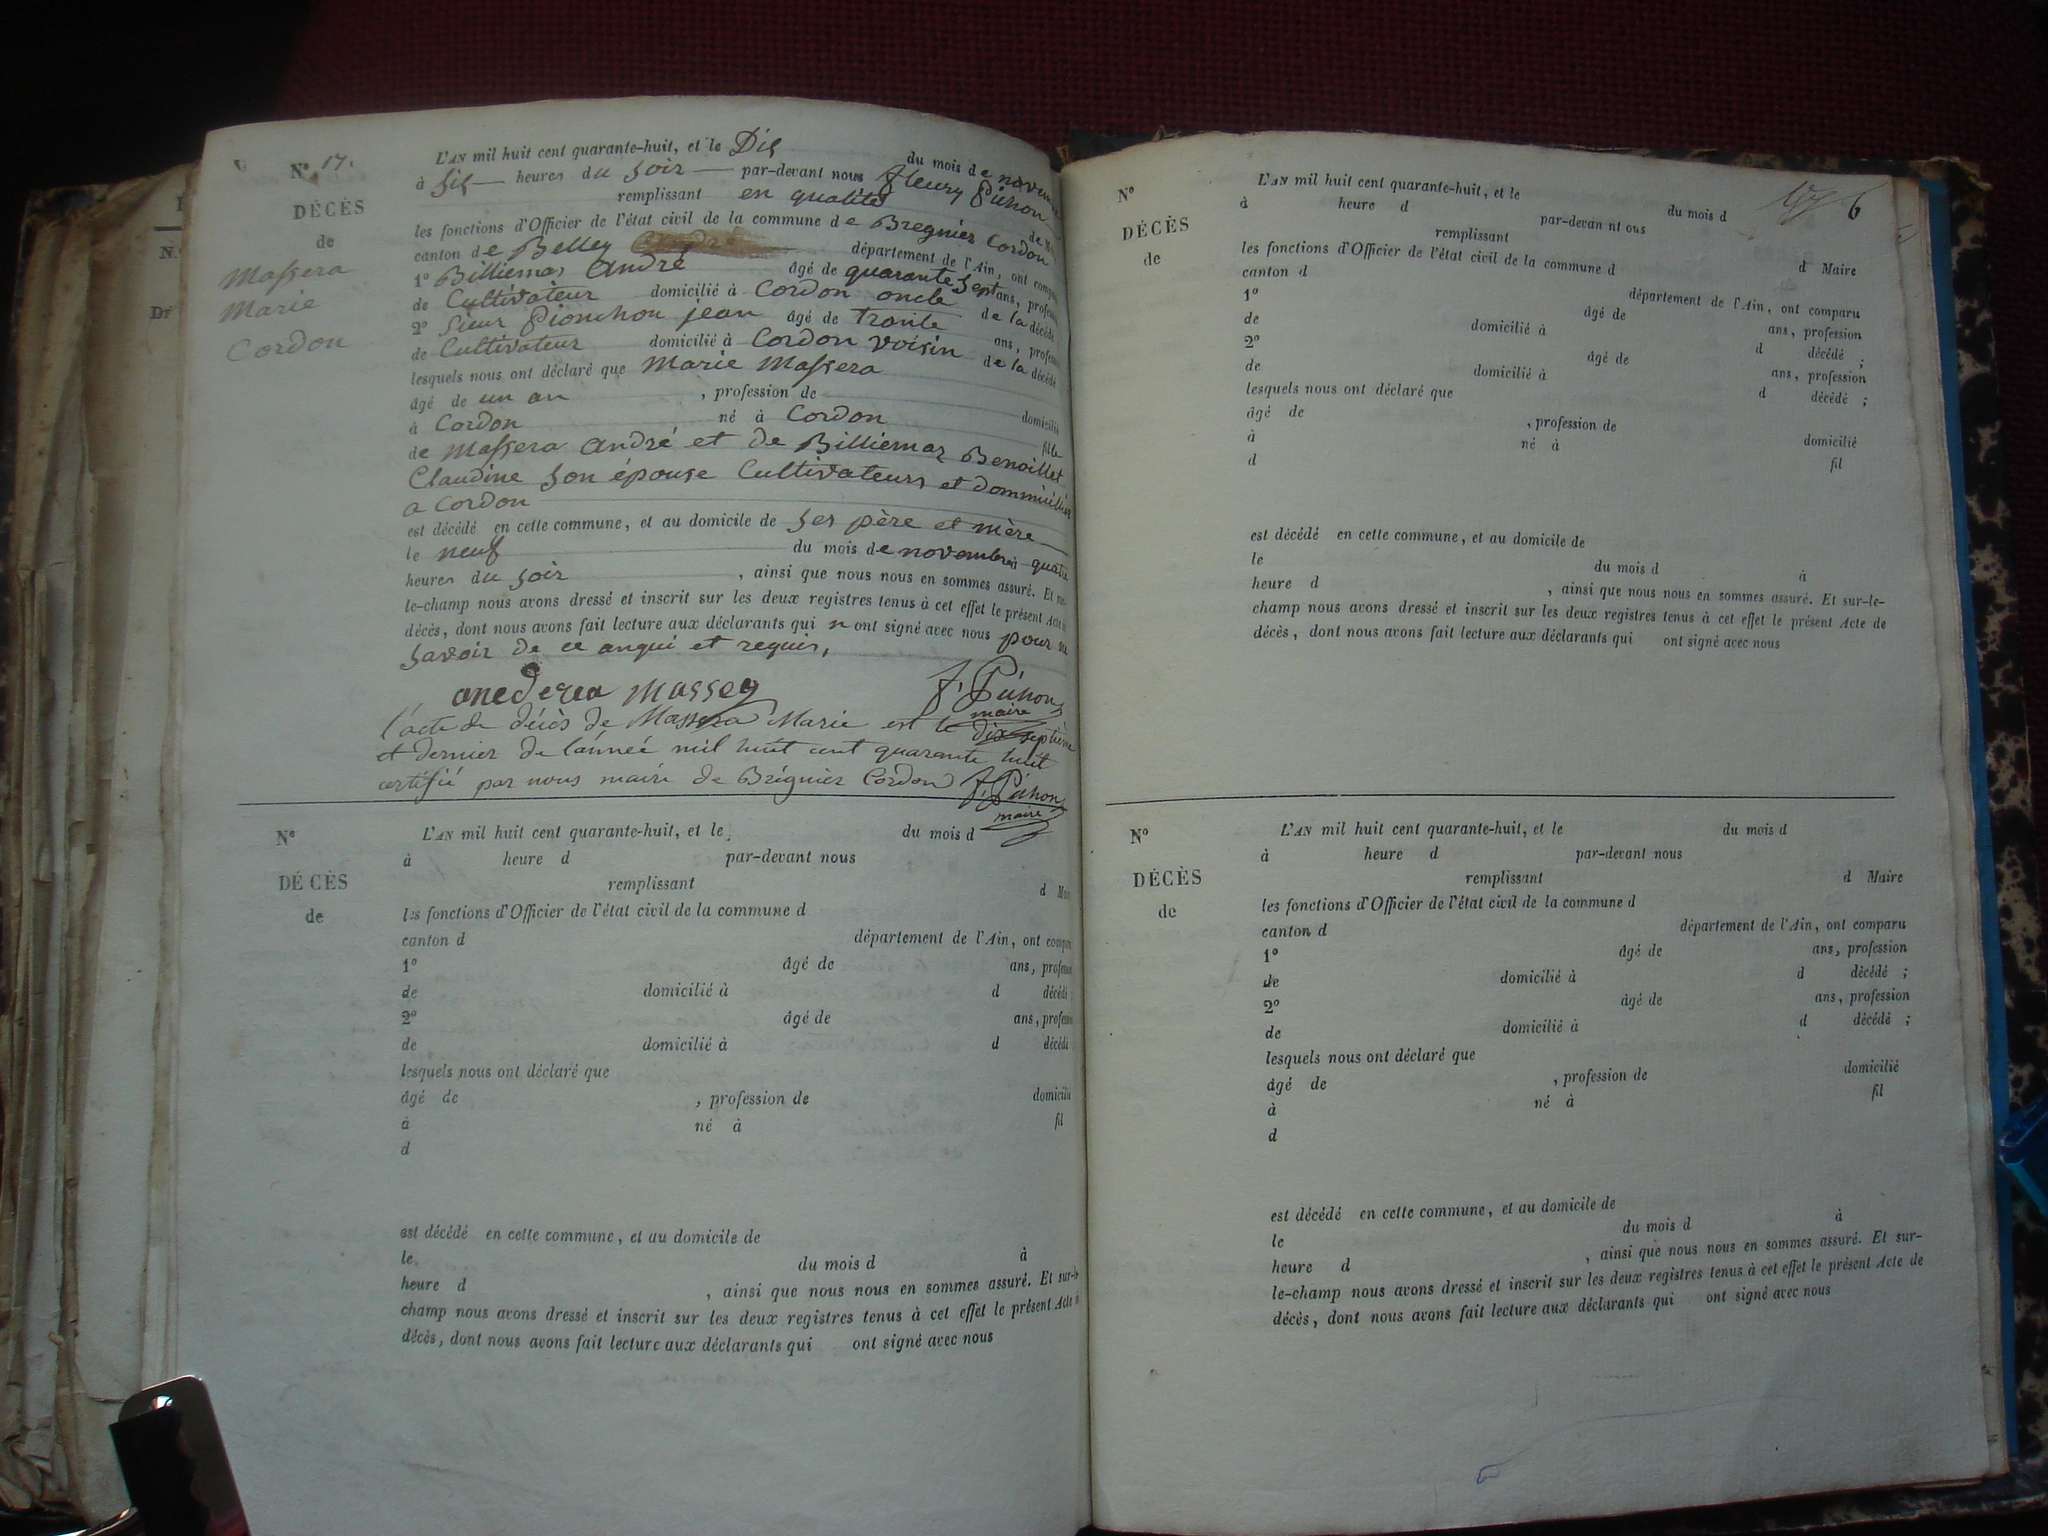 N.° 17.
DÉCÈS
de
Massera
Marie
Cordon
L'AN mil huit cent quarante-huit, et le Dis du mois de
à Sis heures du Soir par-devant nous fleury Pichon
remplissant en qualité de
les fonctions d'Officier de l'état civil de la commune de Bregnier Cordon
canton de Belley département de l'Ain, ont
1° Billiemas André âgé de quarante Sept ans,
de Cultivateur domicilié à Cordon oncle de la décédé
2° Sieur Pionchon jean âgé de trante ans,
de Cultivateur domicilié à Cordon voisin de la décédé
lesquels nous ont déclaré que Marie Massera
âgé de un an , profession de domicilié
à Cordon né à Cordon fille
de Massera André et de Billiemaz Benoillet
Claudine Son épouse Cultivateurs et
a Cordon
est décédé en cette commune, et au domicile de Ses père et mère
le neuf du mois de novembre à
heures du Soir , ainsi que nous nous en sommes assuré. Et
le-champ nous avons dressé et inscrit sur les deux registres tenus à cet effet le présent Acte
décès, dont nous avons fait lecture aux déclarants qui n ont signé avec nous pour
Savoir de ce anqui et requis,
F. Pichon
maire
l'acte de décès de Massera Marie est le dix septième
et dernier de l'année mil huit cent quarante huit
certifié par nous maire de Brégnier Cordon F. Pichon
maire
N°
DÉCÈS
de
L'AN mil huit cent quarante-huit, et le du mois d
à heure d par-devant nous
remplissant d
les fonctions d'Officier de l'état civil de la commune d
canton d département de l'Ain, ont
1° âgé de ans,
de domicilié à d décédé
2° âgé de ans,
de domicilié à d décédé
lesquels nous ont déclaré que
âgé de , profession de domicilié
à né à fil
d
est décédé en cette commune, et au domicile de
le du mois d à
heure d , ainsi que nous nous en sommes assuré. Et sur-le-
champ nous avons dressé et inscrit sur les deux registres tenus à cet effet le présent Acte
décès, dont nous avons fait lecture aux déclarants qui ont signé avec nous
6
N°
DÉCÈS
de
L'AN mil huit cent quarante-huit, et le du mois d
à heure d par-devan nt ous
remplissant d Maire
les fonctions d'Officier de l'état civil de la commune d
canton d département de l'Ain, ont comparu
1° âgé de ans, profession
de domicilié à d décédé ;
2° âgé de ans, profession
de domicilié à d décédé ;
lesquels nous ont déclaré que
âgé de , profession de domicilié
à né à fil
d
est décédé en cette commune, et au domicile de
le du mois d à
heure d , ainsi que nous nous en sommes assuré. Et sur-le-
champ nous avons dressé et inscrit sur les deux registres tenus à cet effet le présent Acte de
décès, dont nous avons fait lecture aux déclarants qui ont signé avec nous
N°
DÉCÈS
de
L'AN mil huit cent quarante-huit, et le du mois d
à heure d par-devant nous
remplissant d Maire
les fonctions d'Officier de l'état civil de la commune d
canton d département de l'Ain, ont comparu
1° âgé de ans, profession
de domicilié à d décédé ;
2° âgé de ans, profession
de domicilié à d décédé ;
lesquels nous ont déclaré que
âgé de , profession de domicilié
à né à fil
d
est décédé en cette commune, et au domicile de
le du mois d à
heure d , ainsi que nous nous en sommes assuré. Et sur-
le-champ nous avons dressé et inscrit sur les deux registres tenus à cet effet le présent Acte de
décès, dont nous avons fait lecture aux déclarants qui ont signé avec nous